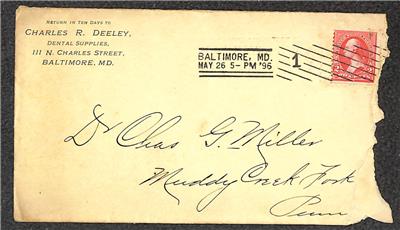 RETURN IN TEN DAYS TO
CHARLES R. DEELEY,
DENTAL SUPPLIES,
111 N. CHARLES STREET,
BALTIMORE, MD.
BALTIMORE, MD.
MAY 26 5-PM '96
1
Dr Chas G. Miller
Muddy Creek Fork
Penn